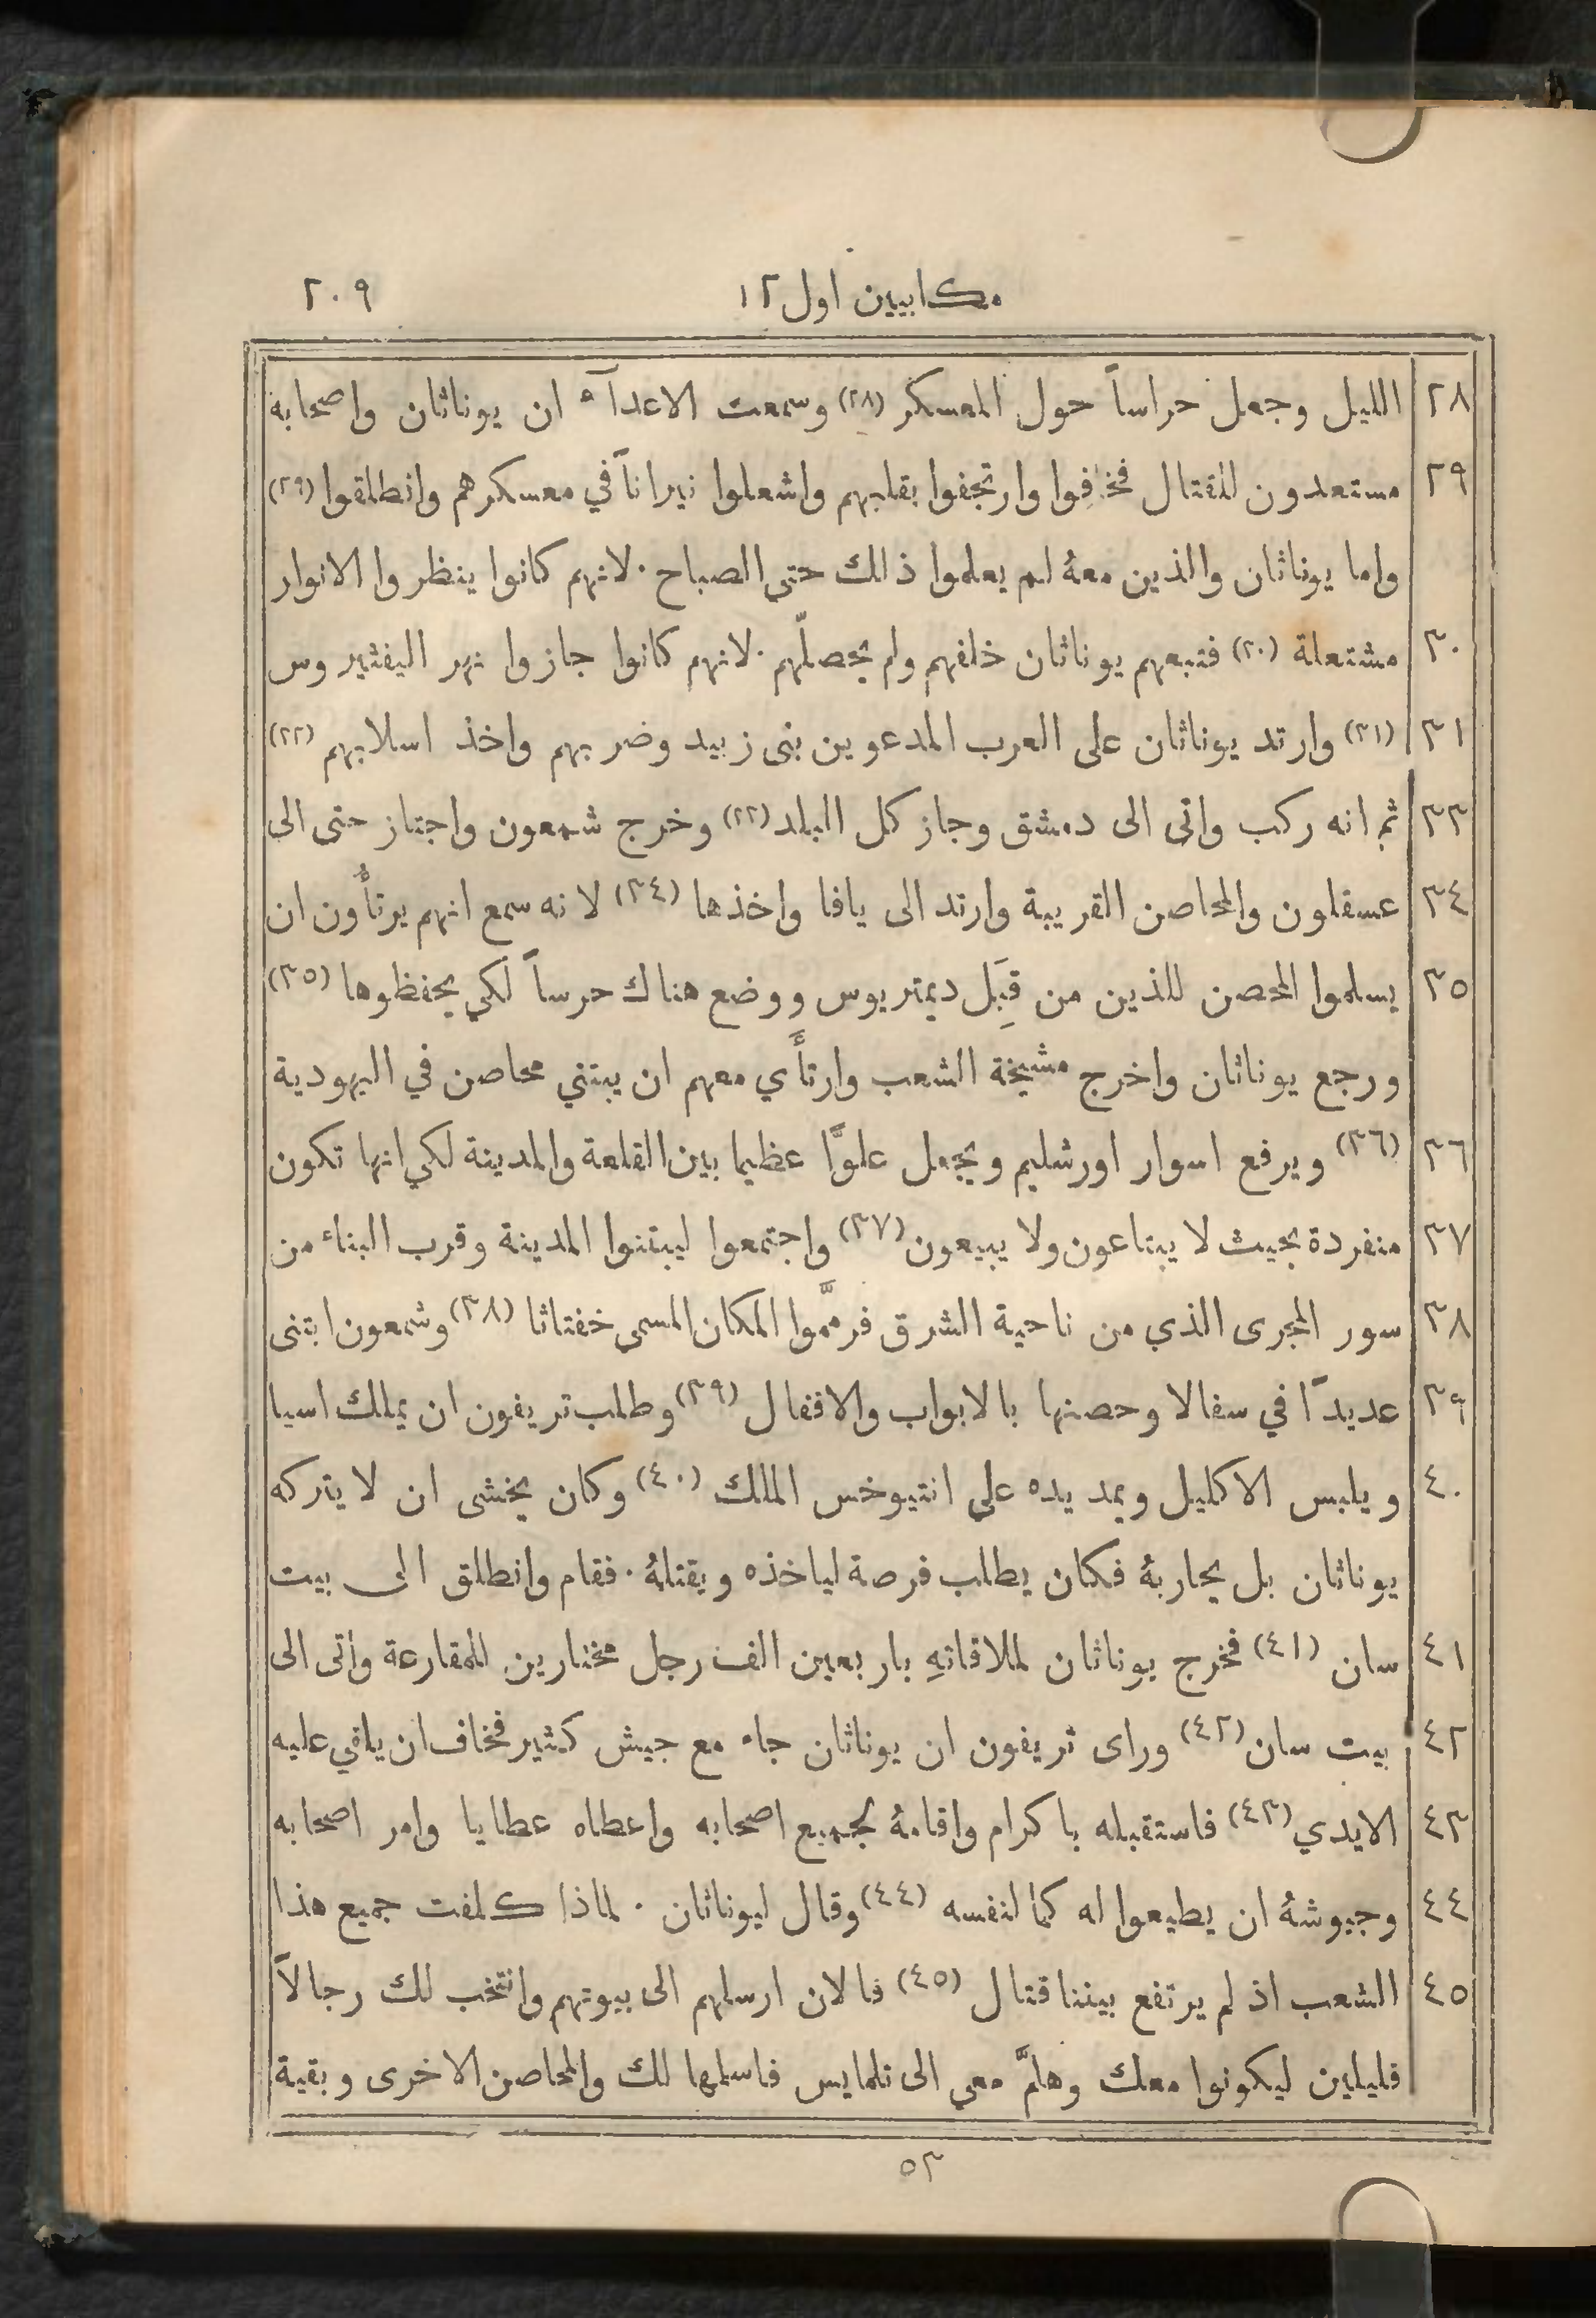 مكابيين اول ١٢
٢٠٩
٢٨ الليل وجعل حراساً حول المعسكر (٢٨) وسمعت الاعدآء ان يوناثان واصحابه
٢٩ مستعدون للقتال فخافوا وارتجفوا بقلبهم واشعلوا نيراناً في معسكرهم وانطلقوا (٢٩)
واما يوناثان والذين معهُ لم يعلموا ذلك حتى الصباح. لانهم كانوا ينظروا الانوار
٣٠ مشتعلة (٣٠) فتبعهم يوناثان خلفهم ولم يحصلّهم. لانهم كانوا جازوا نهر اليفثيروس
٣١ (٣١) وارتد يوناثان على العرب المدعوين بنى زبيد وضربهم واخذ اسلابهم (٣٢)
٣٣ ثم انه ركب واتى الى دمشق وجاز كل البلد (٣٣) وخرج شمعون واجتاز حتى الى
٣٤ عسقلون والمحاصن القريبة وارتد الى يافا واخذها (٣٤) لانه سمع انهم يرتأون ان
٣٥ يسلموا المحصن للذين من قِبَل ديمتريوس ووضع هناك حرساً لكي يحفظوها (٣٥)
ورجع يوناثان واخرج مشيخة الشعب وارتأَي معهم ان يبتني محاصن في اليهودية
٣٦ (٣٦) ويرفع اسوار اورشليم ويجعل علوًّا عظيما بين القلعة والمدينة لكي انها تكون
٣٧ منفردة بحيث لا يبتاعون ولا يبيعون (٣٧) واجتمعوا ليبتنوا المدينة وقرب البناء من
٣٨ سور المجرى الذي من ناحية الشرق فرمَّموا المكان المسمى خفتاثا (٣٨) وشمعون ابتنى
٣٩ عديدًا في سفالا وحصنها بالابواب والاقفال (٣٩) وطلب تريفون ان يملك اسيا
٤٠ ويلبس الاكليل ويمد يده على انتيوخس الملك (٤٠) وكان يخشى ان لا يتركه
يوناثان بل يحاربهُ فكان يطلب فرصة لياخذه ويقتلهُ. فقام وانطلق الى بيت
٤١ سان (٤١) فخرج يوناثان لملاقاتهِ باربعين الف رجل مختارين للمقارعة واتى الى
٤٢ بيت سان (٤٢) وراى تريفون ان يوناثان جاء مع جيش كثير فخاف ان يلقي عليه
٤٣ الايدي (٤٣) فاستقبله باكرام واقامهُ لجميع اصحابه واعطاه عطايا وامر اصحابه
٤٤ وجيوشهُ ان يطيعوا له كما لنفسه (٤٤) وقال ليوناثان. لماذا كلفت جميع هذا
٤٥ الشعب اذ لم يرتفع بيننا قتال (٤٥) فالان ارسلهم الى بيوتهم وانتخب لك رجالاً
قليلين ليكونوا معك وهلمَّ معي الى تلمايس فاسلمها لك والمحاصن الاخرى وبقية
٥٣